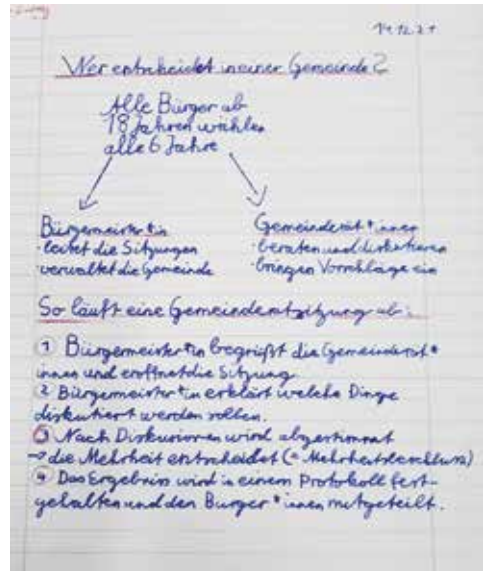 14.12.21
Wer entscheidet in einer Gemeinde?
Alle Bürger ab
18 Jahren wählen
alle 6 Jahre
Bürgermeister*in
· leitet die Sitzungen
· verwaltet die Gemeinde
Gemeinderät*innen
· beraten und diskutieren
· bringen Vorschläge ein
So läuft eine Gemeinderatsitzung ab:
1 Bürgermeister*in begrüßt die Gemeinderät*
innen und eröffnet die Sitzung
2 Bürgermeister*in erklärt welche Dinge
diskutiert werden sollen.
3 Nach Diskussionen wird abgestimmt
→ die Mehrheit entscheidet (= Mehrheitsbeschluss)
4 Das Ergebnis wird in einem Protokoll fest-
gehalten und den Bürger*innen mitgeteilt.